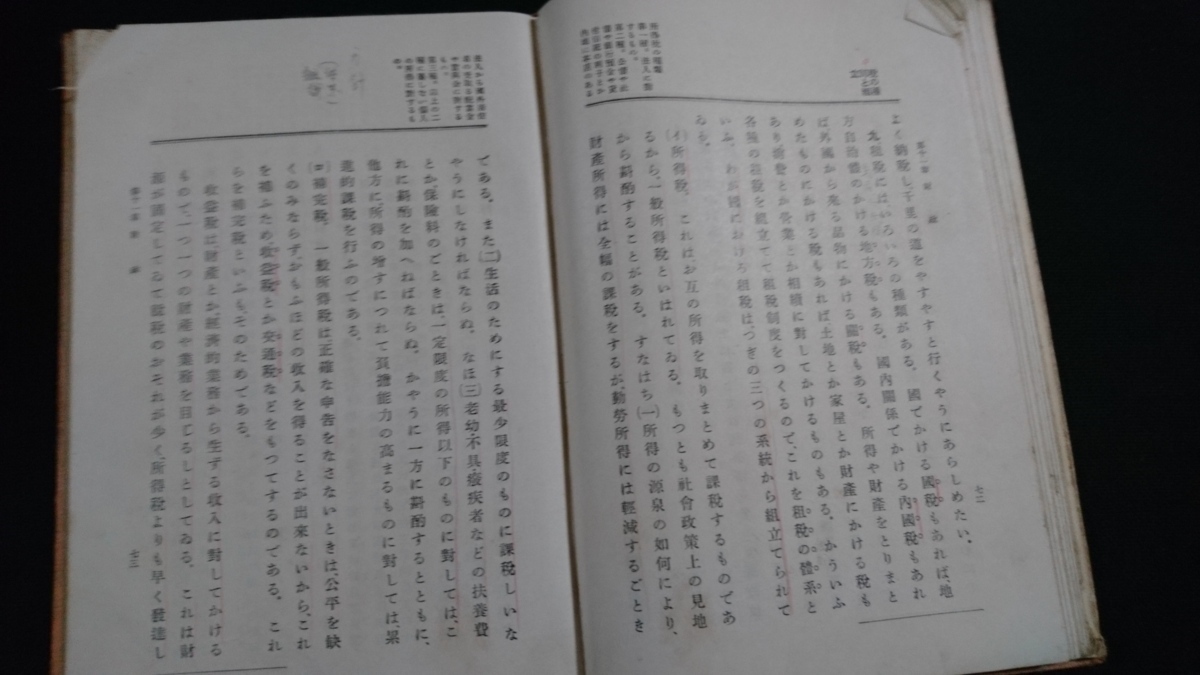 租税の種
類と系統
第十一章 財政
七二
よく納税して千里の道をやすやすと行くやうにあらしめたい。
租税には、いろいろの種類がある。國でかける國税もあれば、地
方自治體のかける地方税もある。國内關係でかける内國税もあれ
ば外國から來る品物にかける關税もある。所得や財產をとりまと
めたものにかける税もあれば土地とか家屋とか財產にかける税も
あり消費とか營業とか相續に對してかけるものもある。かういふ
各種の租税を組立てて租税制度をつくるので、これを租税の體系と
いふ。わが國における租税は、つぎの三つの系統から組立てられて
ゐる。
(イ)所得税。これは、お互の所得を取りまとめて課税するものであ
るから、一般所得税といはれてゐる。もつとも社會政策上の見地
から斟酌することがある。すなはち(一)所得の源泉の如何により、
財產所得には全幅の課税をするが、勤勞所得には輕減するごとき
所得税の種類
第一種。法人に對
するもの。
第二種。公債や社
債や銀行預金や貸
付信託の利子とか
である。また(二)生活のためにする最少限度のものに課税しいな
やうにしなければならぬ。なほ(三)老幼・不具・癈疾者などの扶養費
とか、保險料のごときは、一定限度の所得以下のものに對しては、こ
れに斟酌を加へねばならぬ。かやうに一方に斟酌するとともに、
他方に所得の增すにつれて負擔能力の高まるものに對しては、累
進的課税を行ふのである。
(ロ)補完税。一般所得税は正確な申告をなさないときは公平を缺
くのみならず、おもふほどの收入を得ることが出來ないから、これ
を補ふため、收益税とか交通税などをもつてするのである。これ
らを補完税といふも、そのためである。
收益税は、財產とか、經濟的業務から生する收入に對してかける
もので、一つ一つの財產や業務を目じるしとしてゐる。これは財
源が固定してゐて脫税のおそれが少く、所得税よりも早く發達し
第十一章 財政
七三